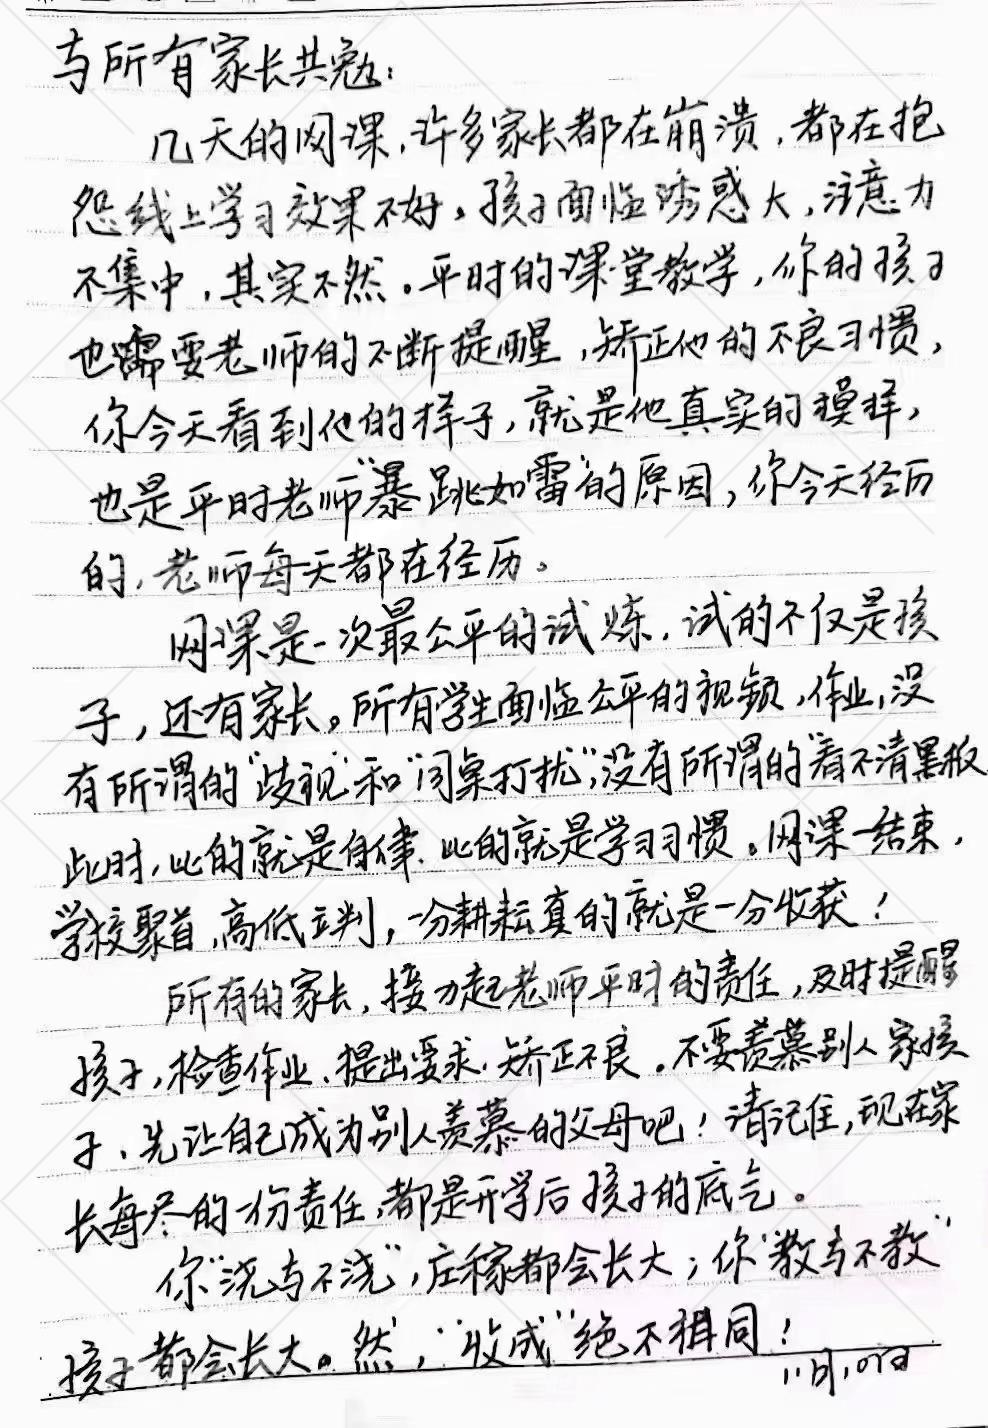 与所有家长共勉:
几天的网课,许多家长都在崩溃,都在抱
怨线上学习效果不好,孩子面临诱惑大,注意力
不集中,其实不然。平时的课堂教学,你的孩子
也需要老师的不断提醒,矫正他的不良习惯,
你今天看到他的样子,就是他真实的模样,
也是平时老师“暴跳如雷”的原因,你今天经历
的,老师每天都在经历。
网课是一次最公平的试炼,试的不仅是孩
子,还有家长。所有学生面临公平的视频,作业,没
有所谓的“歧视”和“同桌打扰”,没有所谓的“看不清黑板
此时,比的就是自律、比的就是学习习惯。网课一结束,
学校聚首,高低立判,一分耕耘真的就是一分收获!
所有的家长,接力起老师平时的责任,及时提醒
孩子,检查作业、提出要求、矫正不良。不要羡慕别人家孩
子、先让自己成为别人羡慕的父母吧!请记住,现在家
长每尽的一份责任,都是开学后孩子的底气。
你“浇与不浇”,庄稼都会长大;你“教与不教”
孩子都会长大。然,“收成”绝不相同!
11月